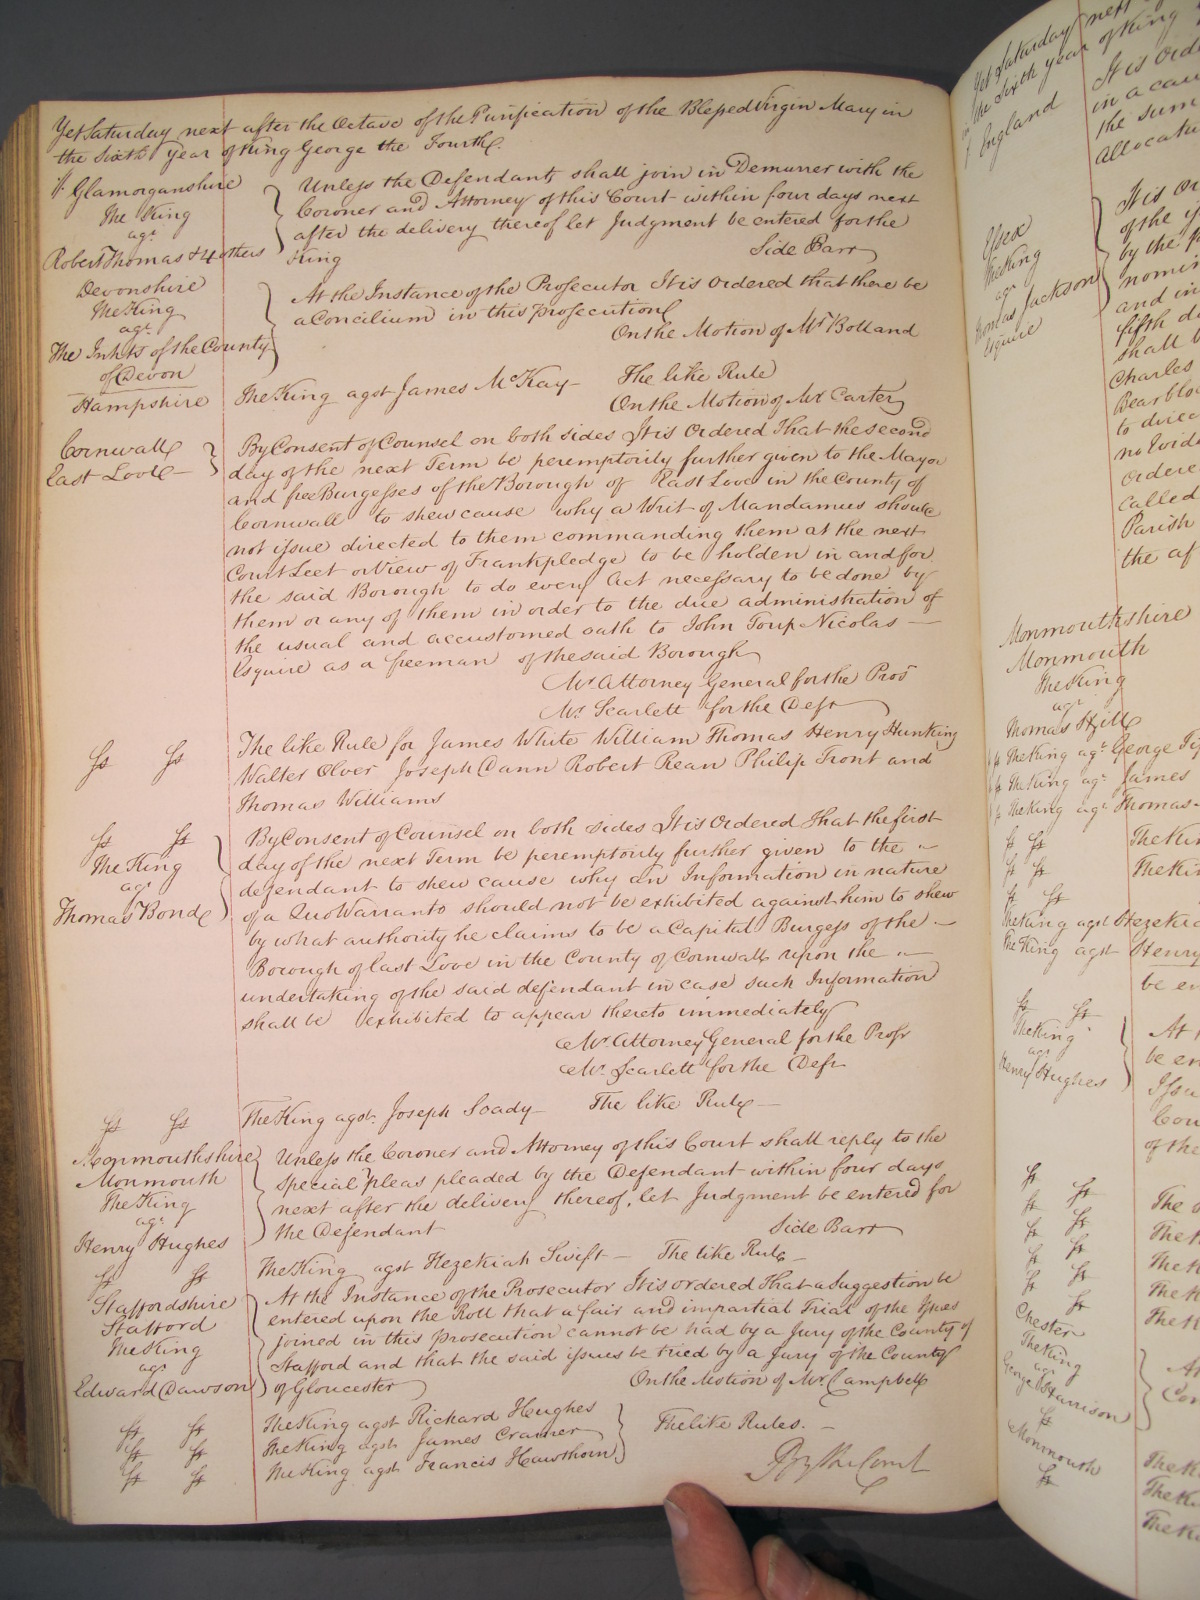 Yet Saturday next after the Octave of the Purification of the Blessed Virgin Mary in
the Sixth Year of King George the Fourth.
Glamorganshire
The King
agt
Robert Thomas & 4 others
Unless the Defendants shall join in Demurrer with the
Coroner and Attorney of this Court within four days next
after the delivery thereof let Judgment be entered for the
King
Side Barr
Devonshire
The King
agt
The Inhts of the County
of Devon
At the Instance of the Prosecutor It is Ordered that there be
a Concilium in this prosecution
On the Motion of Mr Bolland
Hampshire
The King agst James McKay
The like Rule
On the Motion of Mr Carter
Cornwall
East Looe
By Consent of Counsel on both sides It is Ordered That the second
day of the next Term be peremptorily further given to the Mayor
and free Burgesses of the Borough of East Looe in the County of
Cornwall to shew cause why a Writ of Mandamus should
not issue directed to them commanding them at the next
Court Leet or View of Frankpledge to be holden in and for
the said Borough to do every Act necessary to be done by
them or any of them in order to the due administration of
the usual and accustomed oath to John Toup Nicolas
Esquire as a freeman of the said Borough
Mr Attorney General for the Pros
Mr Scarlett for the Deft
Ss Ss
The like Rule for James White William Thomas Henry Hunking
Walter Olver Joseph Cann Robert Rean Philip Front and
Thomas Williams
Ss Ss
The King
agt
Thomas Bond
By Consent of Counsel on both sides It is Ordered That the first
day of the next Term be peremptorily further given to the
defendant to shew cause why an Information in nature
of a Quo Warranto should not be exhibited against him to shew
by what authority he claims to be a Capital Burgess of the
Borough of East Looe in the County of Cornwall upon the
undertaking of the said defendant in case such Information
shall be exhibited to appear thereto immediately
Mr Attorney General for the Prosr
Mr Scarlett for the Deft
Ss Ss
The King agst Joseph Soady
The like Rule
Monmouthshire
Monmouth
The King
agt
Henry Hughes
Unless the Coroner and Attorney of this Court shall reply to the
special pleas pleaded by the Defendant within four days
next after the delivery thereof, let Judgment be entered for
the Defendant
Side Barr
Ss Ss
The King agst Hezekiah Swift
The like Rule
Staffordshire
Stafford
The King
agt
Edward Dawson
At the Instance of the Prosecutor It is ordered That a Suggestion be
entered upon the Roll that a fair and impartial Trial of the Issues
joined in this prosecution cannot be had by a Jury of the County of
Stafford and that the said issues be tried by a Jury of the County
of Gloucester
On the Motion of Mr Campbell
Ss Ss The King agst Richard Hughes
Ss Ss The King agst James Cramer
Ss Ss The King agst Francis Hawthorn
The like Rules.
By the Court
Yet Saturday next
the Sixth year of King
England
It is Orde
in a cau
the sum
allocatu
Essex
The King
agt
Thomas Jackson
Esquire
It is Or
of the
by the
nomi
and in
fifth d
shall b
Charles
Bearblo
to direc
no Evide
Ordere
Called
Parish
the af
Monmouthshire
Monmouth
The King
agt
Thomas Hill
The King agt George
The King agt James
The King agt Thomas
Ss Ss The Kin
Ss Ss The Kin
Ss Ss
The King agst Hezekia
The King agst Henry
be en
Ss Ss
The King
agt
Henry Hughes
At
be en
Issu
Cou
of the
Ss
Ss Ss The
Ss Ss The K
Ss Ss The K
Ss Ss The K
Ss The K
Chester
The King
agt
George Harrison
At
Con
Ss
Monmouth
Ss
The K
The K
The K